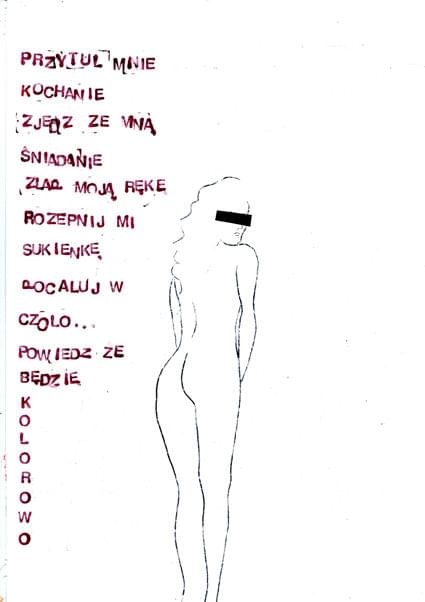 PRZYTUL MNIE
KOCHANIE
ZJEDZ ZE MNĄ
ŚNIADANIE
ZŁAP MOJĄ RĘKĘ
ROZEPNIJ MI
SUKIENKĘ
POCAŁUJ W
CZOŁO...
POWIEDZ ZE
BĘDZIE
K
O
L
O
R
O
W
O